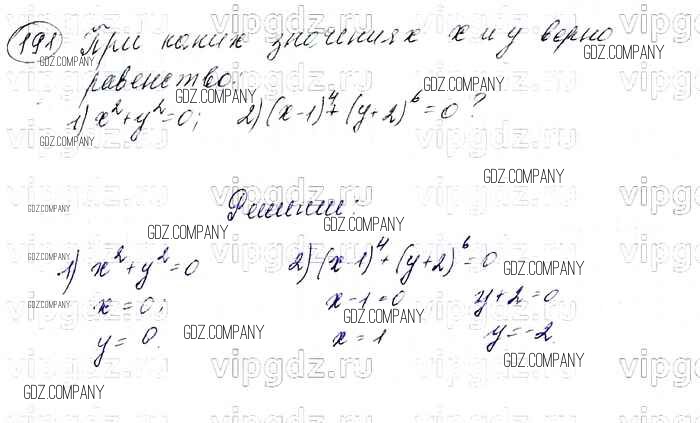 191 При каких значениях х и у верно
равенство:
1) x²+y²=0; 2) (x-1)⁴+(y+2)⁶=0?
Решение:
1) x²+y²=0 2) (x-1)⁴+(y+2)⁶=0
x=0; x-1=0 y+2=0
y=0. x=1 y=-2
vipgdz.ru
GDZ.COMPANY